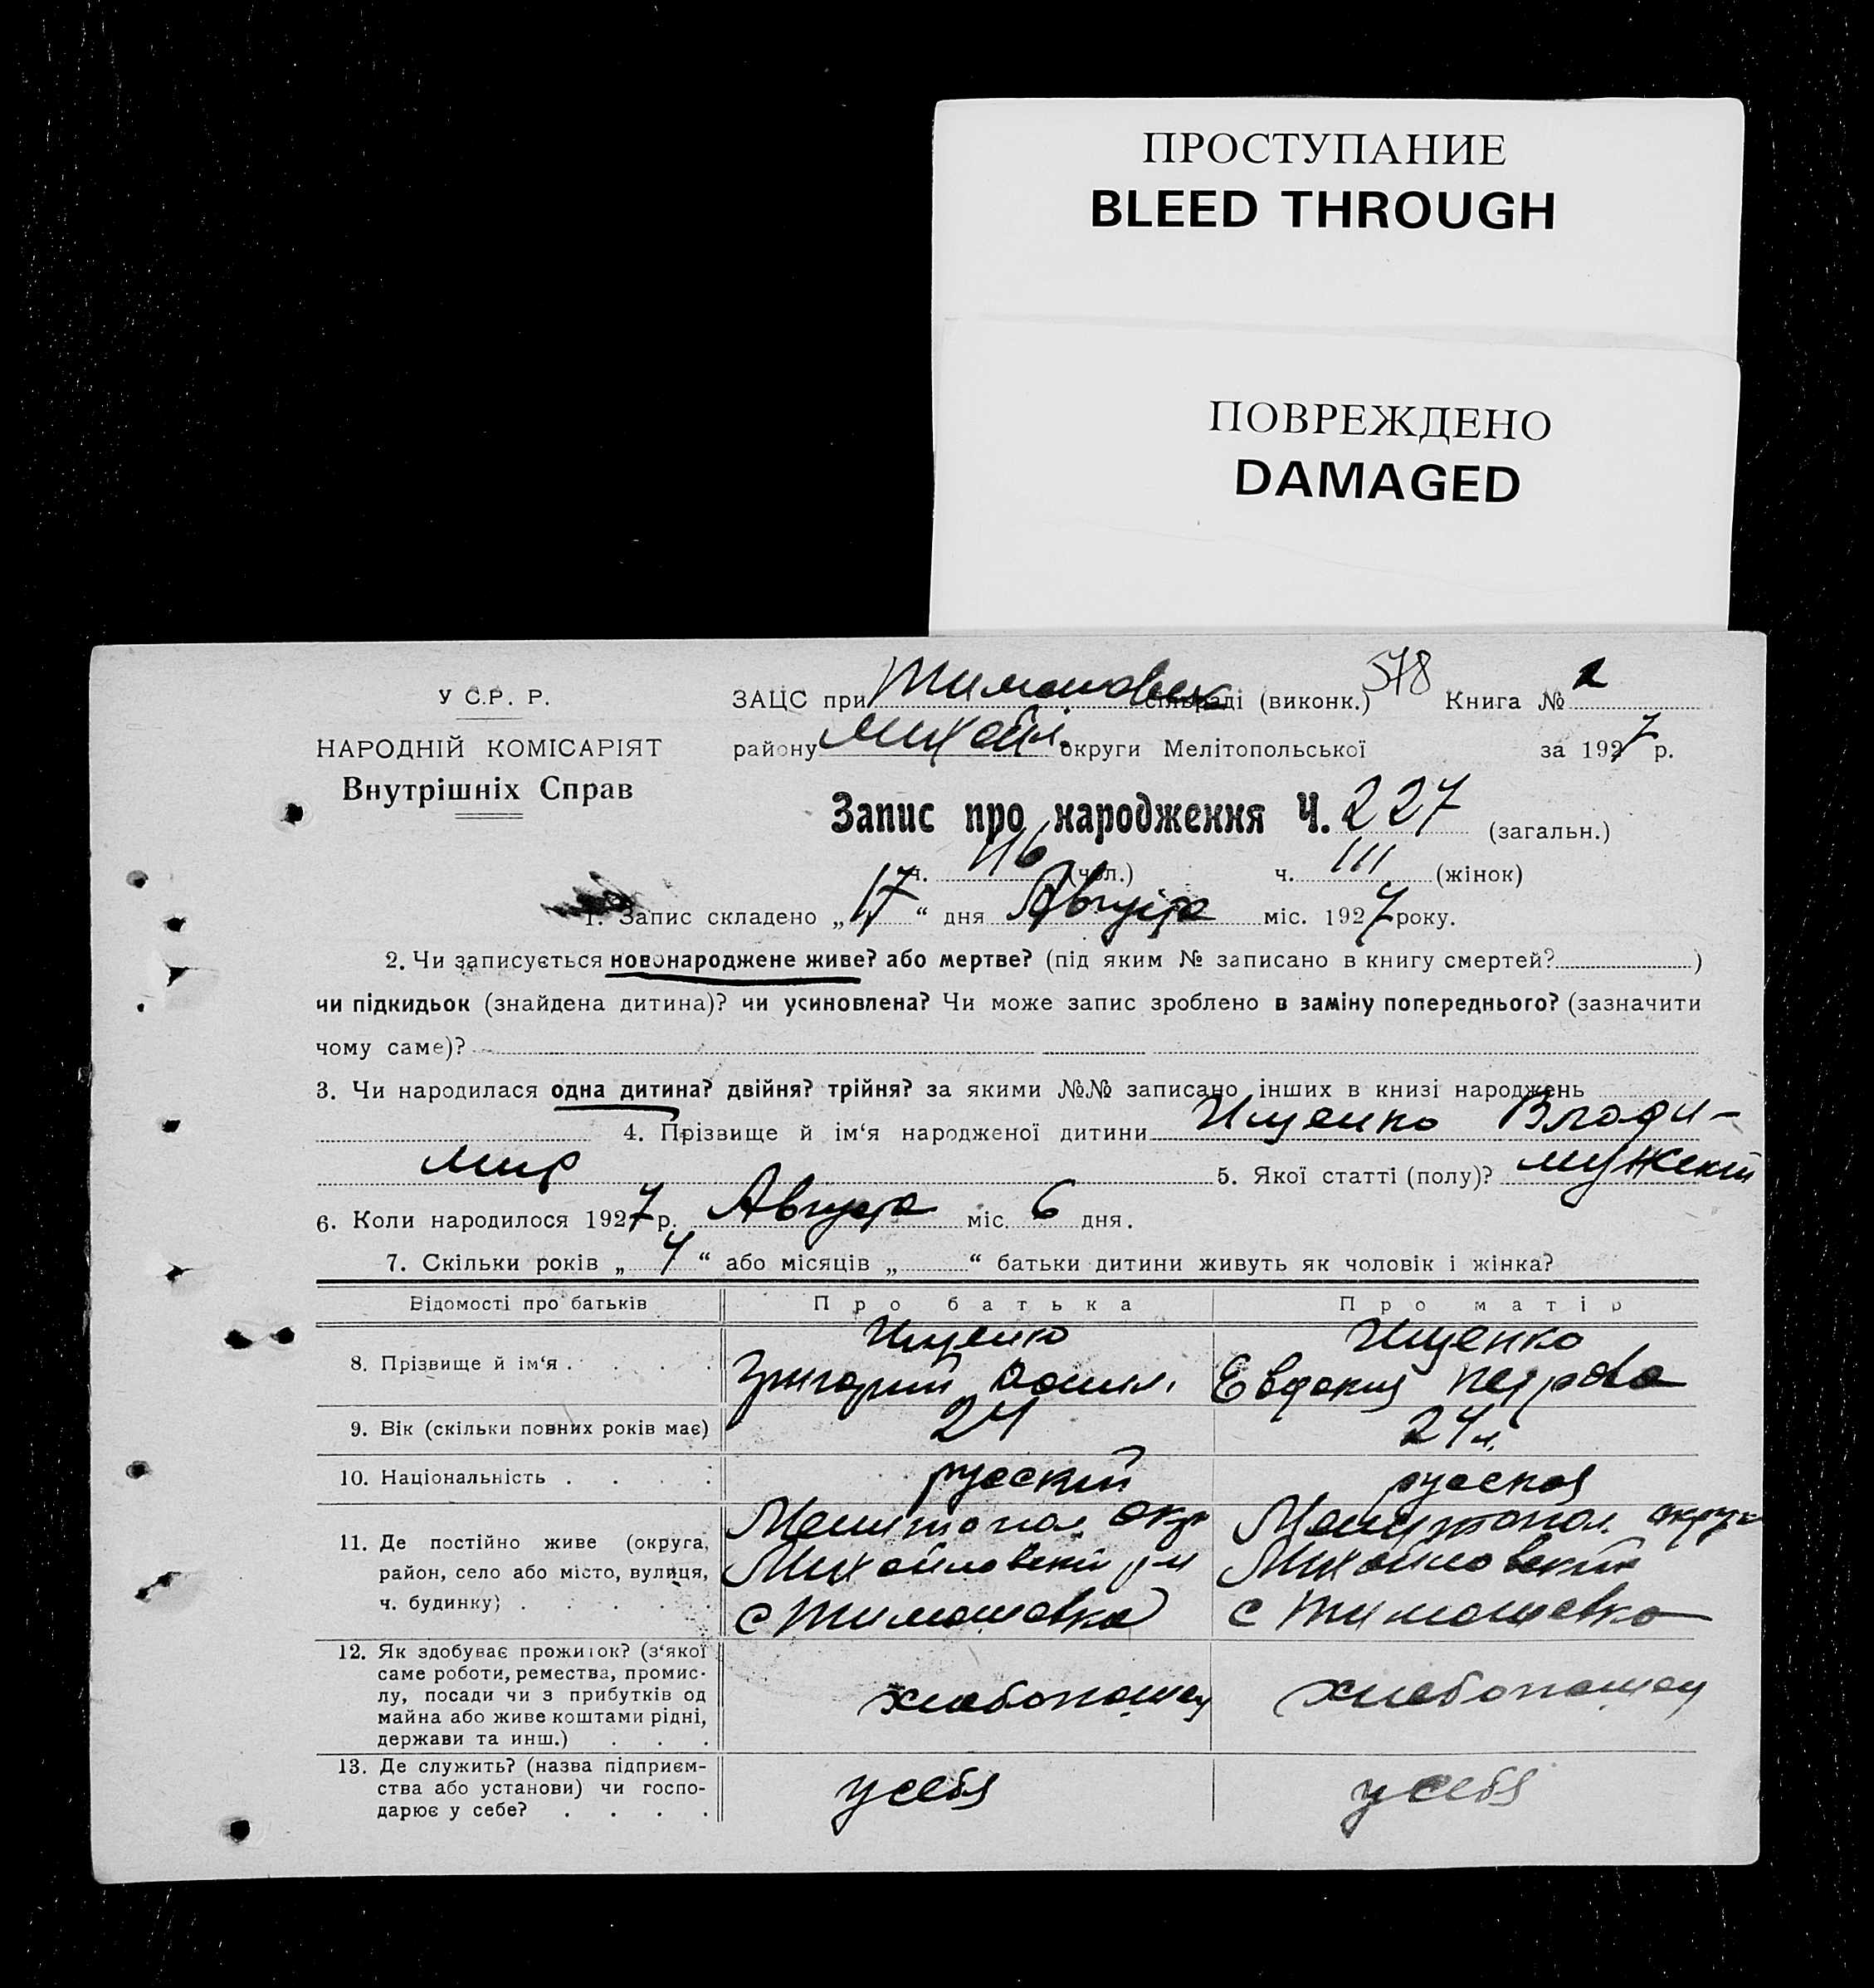 ПРОСТУПАНИЕ
BLEED THROUGH
ПОВРЕЖДЕНО
DAMAGED
У С.Р. Р.
НАРОДНІЙ КОМІСАРІЯТ
Внутрішніх Справ
578
ЗАЦС при Тимошовск сільраді (виконк.) Книга № 2
району Михайл. округи Мелітопольської за 1927 р.
Запис про народження Ч. 227 (загальн.)
ч. 116 (чол.) ч. 111 (жінок)
1. Запис складено „17“ дня Августа міс. 1927 року.
2. Чи записується новонароджене живе? або мертве? (під яким № записано в книгу смертей? )
чи підкидьок (знайдена дитина)? чи усиновлена? Чи може запис зроблено в заміну попереднього? (зазначити
чому саме)?
3. Чи народилася одна дитина? двійня? трійня? за якими №№ записано інших в книзі народжень
4. Прізвище й ім‘я народженої дитини Ищенко Влади-
мир 5. Якої статті (полу)? мужский
6. Коли народилося 1927 р. Августа міс. 6 дня.
7. Скільки років „ 4 “ або місяців „ “ батьки дитини живуть як чоловік і жінка?
Відомості про батьків Про батька Про матір
8. Прізвище й ім‘я . . . . Ищенко Ищенко
Григорий Евдокия Петрова
9. Вік (скільки повних років має) 24 24 л.
10. Національність . . . . русский русская
11. Де постійно живе (округа, Мелитопол. окр Мелитопол. округи
район, село або місто, вулиця, Михайловский р н Михайловский
ч. будинку) . . . . . с Тимошовка с Тимошевка
12. Як здобуває прожиток? (з‘якої
саме роботи, ремества, промис-
лу, посади чи з прибутків од хлебопашец хлебопашец
майна або живе коштами рідні,
держави та инш.) . . .
13. Де служить? (назва підприєм-
ства або установи) чи госпо- у себя у себя
дарює у себе? . . . .